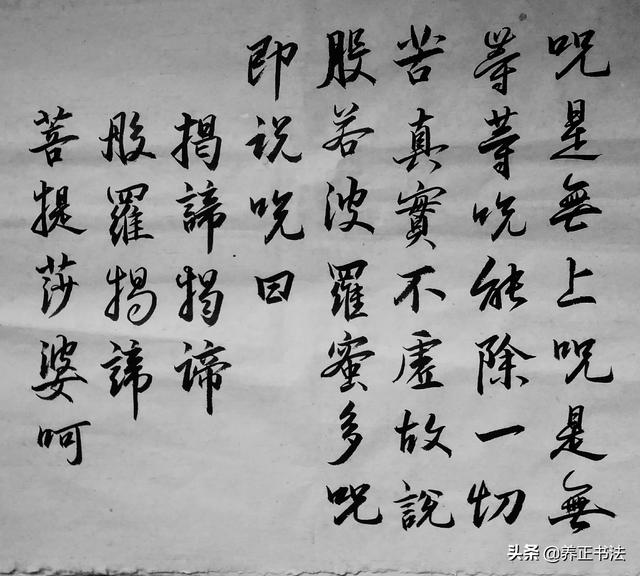 咒是無上咒是無
等等咒能除一切
苦真實不虛故說
般若波羅蜜多咒
即说咒曰
揭諦揭諦
般羅揭諦
菩提莎婆呵
头条 @养正书法